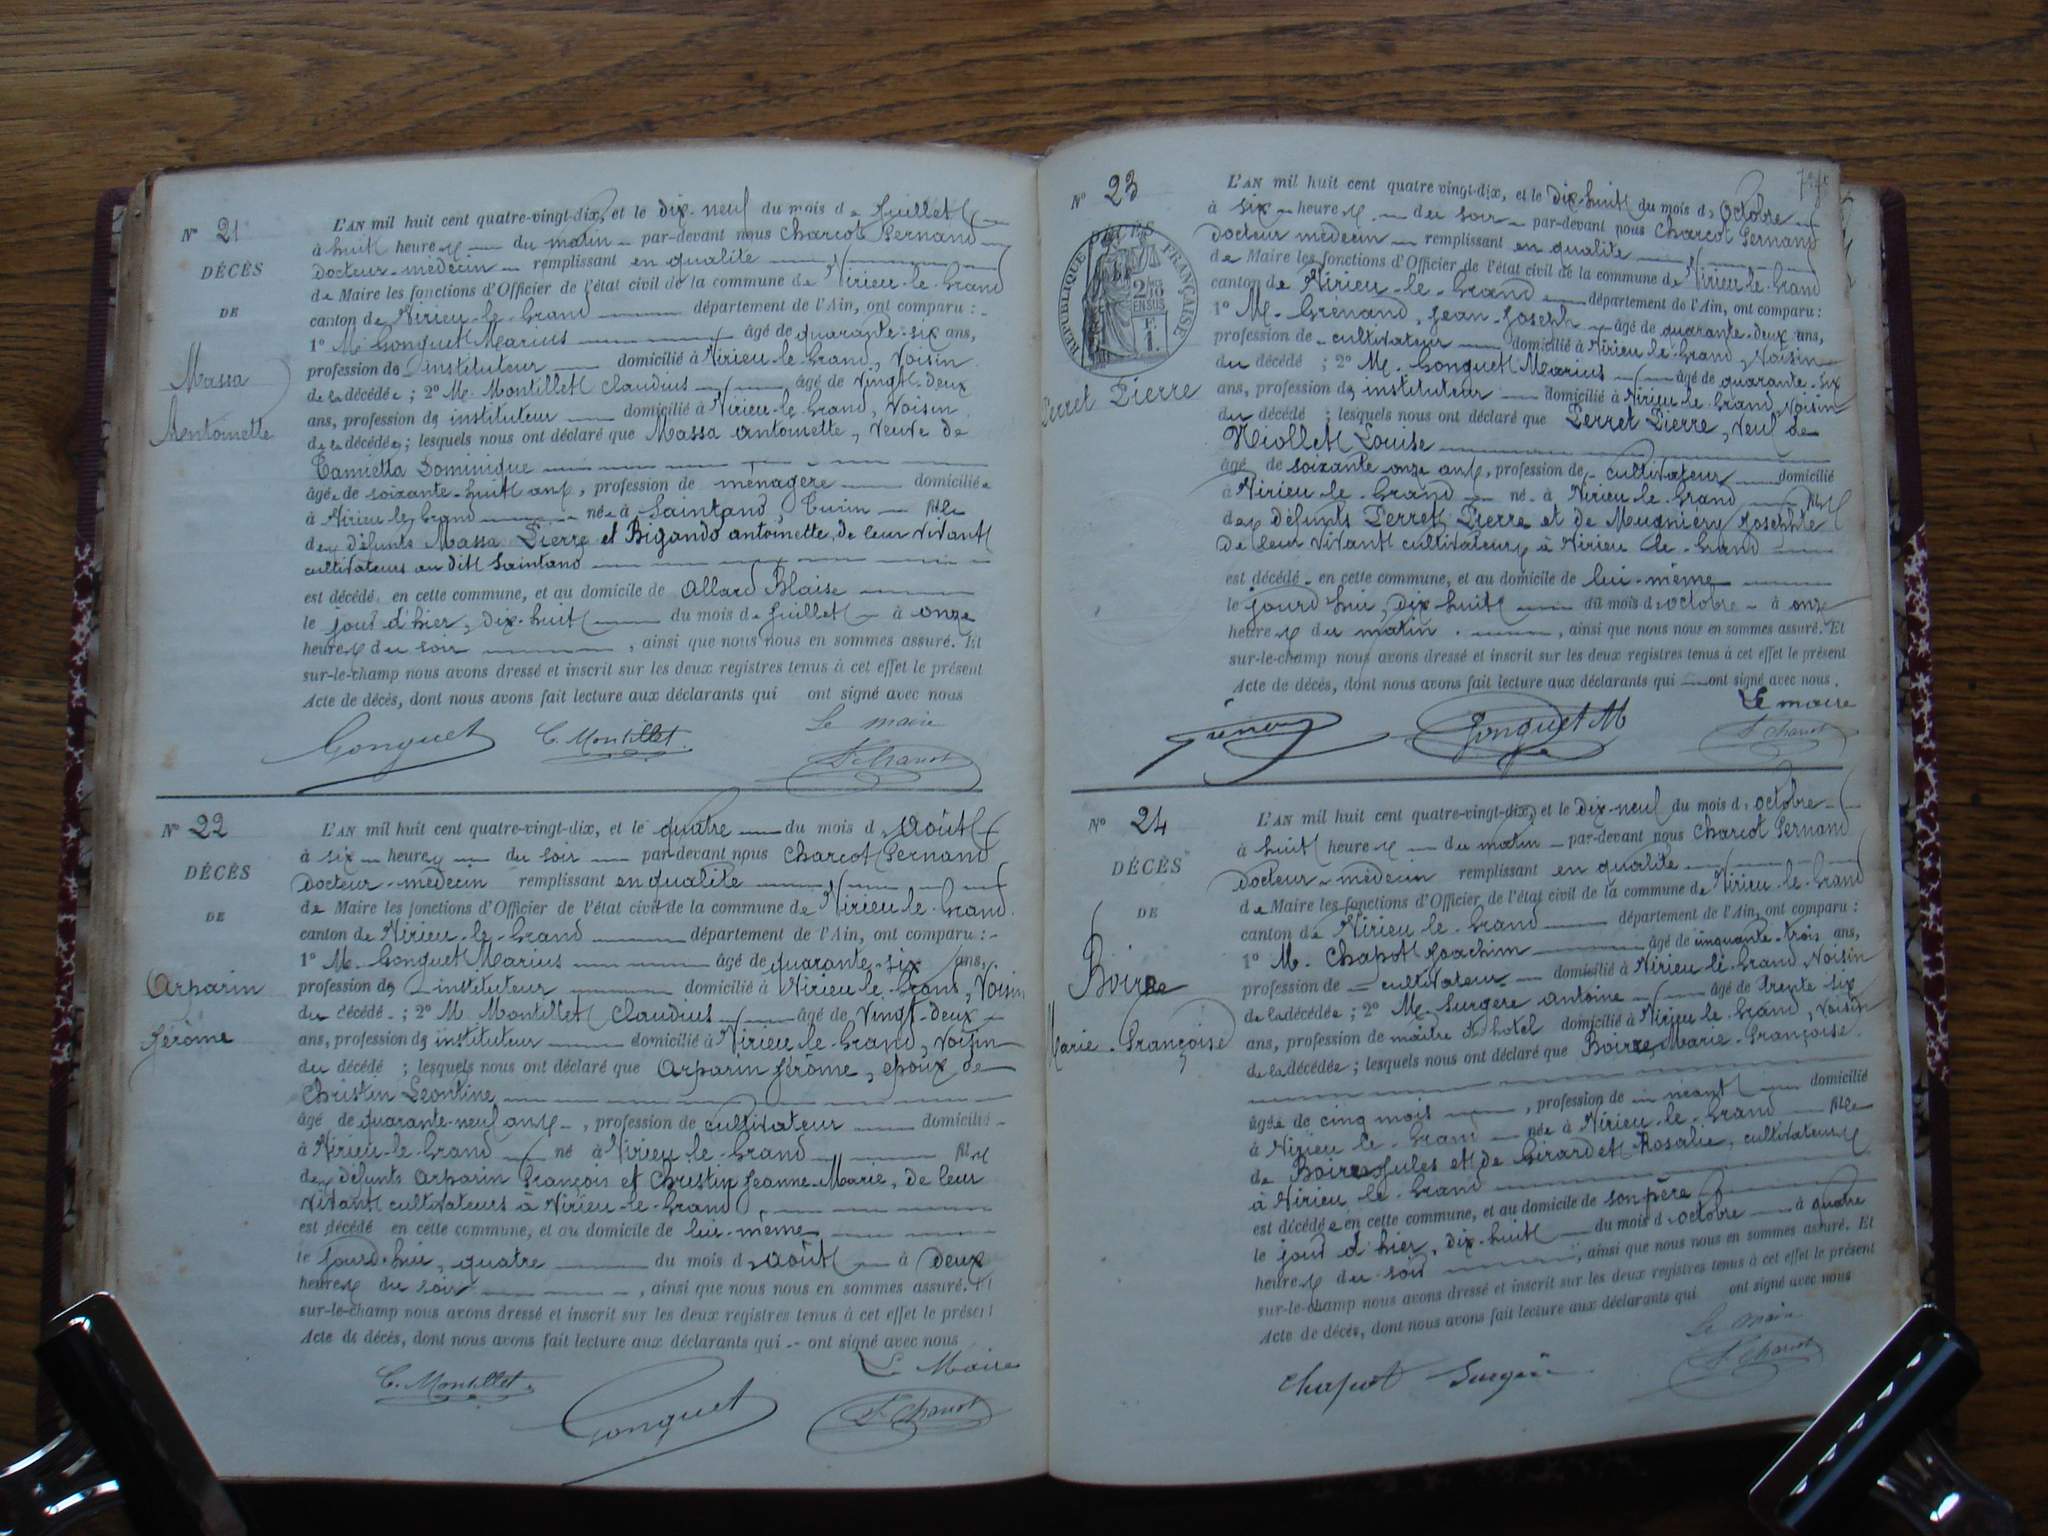 N° 21
DÉCÈS
DE
Massa
Antoinette
L'AN mil huit cent quatre-vingt-dix, et le dix-neuf du mois de Juillet
à huit heures du matin par-devant nous Charcot Fernand
Docteur-médecin remplissant en qualité
de Maire les fonctions d'Officier de l'état civil de la commune de Virieu-le-Grand
canton de Virieu-le-Grand département de l'Ain, ont comparu :
1° M. Gonguet Marius âgé de quarante-six ans,
profession de instituteur domicilié à Virieu-le-Grand, Voisin
de la décédée ; 2° M. Montillet Claudius âgé de vingt-deux
ans, profession de instituteur domicilié à Virieu-le-Grand, Voisin
de la décédée ; lesquels nous ont déclaré que Massa Antoinette, Veuve de
Tamietta Dominique
âgée de soixante-huit ans, profession de ménagère domiciliée
à Virieu-le-Grand née à Saintano, Turin fille
des défunts Massa Pierre et Bigando antoinette, de leur vivant
cultivateurs au dit Saintano
est décédé en cette commune, et au domicile de Allard Blaise
le jour d'hier, dix-huit du mois de Juillet à onze
heures du soir , ainsi que nous nous en sommes assuré. Et
sur-le-champ nous avons dressé et inscrit sur les deux registres tenus à cet effet le présent
Acte de décès, dont nous avons fait lecture aux déclarants qui ont signé avec nous
Le maire
Gonguet C. Montillet F. Charcot
N° 22
DÉCÈS
DE
Arparin
Jérôme
L'AN mil huit cent quatre-vingt-dix, et le quatre du mois d'Août
à six heures du soir par-devant nous Charcot Fernand
Docteur-médecin remplissant en qualité
de Maire les fonctions d'Officier de l'état civil de la commune de Virieu-le-Grand
canton de Virieu-le-Grand département de l'Ain, ont comparu :
1° M. Gonguet Marius âgé de quarante-six ans,
profession de instituteur domicilié à Virieu-le-Grand, Voisin
du décédé ; 2° M. Montillet Claudius âgé de vingt-deux
ans, profession de instituteur domicilié à Virieu-le-Grand, Voisin
du décédé ; lesquels nous ont déclaré que Arparin Jérôme, époux de
Christin Léontine
âgé de quarante-neuf ans, profession de cultivateur domicilié
à Virieu-le-Grand né à Virieu-le-Grand fils
des défunts Arparin François et Christin Jeanne-Marie, de leur
vivant cultivateurs à Virieu-le-Grand
est décédé en cette commune, et au domicile de lui-même
le jourd'hui, quatre du mois d'août à deux
heures du soir , ainsi que nous nous en sommes assuré. Et
sur-le-champ nous avons dressé et inscrit sur les deux registres tenus à cet effet le présent
Acte de décès, dont nous avons fait lecture aux déclarants qui ont signé avec nous
Le Maire
C. Montillet Gonguet F. Charcot
N° 23
DÉCÈS
RÉPUBLIQUE FRANÇAISE
2/10
EN SUS
Perret Pierre
L'AN mil huit cent quatre-vingt-dix, et le Dix-huit du mois d'Octobre
à six heures du soir par-devant nous Charcot Fernand
Docteur médecin remplissant en qualité
de Maire les fonctions d'Officier de l'état civil de la commune de Virieu-le-Grand
canton de Virieu-le-Grand département de l'Ain, ont comparu :
1° M. Grénand, Jean-Joseph âgé de quarante-deux ans,
profession de cultivateur domicilié à Virieu-le-Grand, Voisin
du décédé ; 2° M. Gonguet Marius âgé de quarante-six
ans, profession de instituteur domicilié à Virieu-le-Grand, Voisin
du décédé ; lesquels nous ont déclaré que Perret Pierre, Veuf de
Niollet Louise
âgé de soixante onze ans, profession de cultivateur domicilié
à Virieu-le-Grand né à Virieu-le-Grand fils
des défunts Perret Pierre et de Mugniéry Josephte
de leur vivant cultivateurs à Virieu-le-Grand
est décédé en cette commune, et au domicile de lui-même
le jourd'hui, dix-huit du mois d'octobre à onze
heures du matin , ainsi que nous nous en sommes assuré. Et
sur-le-champ nous avons dressé et inscrit sur les deux registres tenus à cet effet le présent
Acte de décès, dont nous avons fait lecture aux déclarants qui ont signé avec nous.
Le maire
Grénand Gonguet M F. Charcot
N° 24
DÉCÈS
DE
Boirre
Marie-Françoise
L'AN mil huit cent quatre-vingt-dix, et le Dix-neuf du mois d'octobre
à huit heures du matin par-devant nous Charcot Fernand
Docteur-médecin remplissant en qualité
de Maire les fonctions d'Officier de l'état civil de la commune de Virieu-le-Grand
canton de Virieu-le-Grand département de l'Ain, ont comparu :
1° M. Chapot Joachim âgé de cinquante-trois ans,
profession de cultivateur domicilié à Virieu-le-Grand, Voisin
de la décédée ; 2° M. Surgère Antoine âgé de trente-six
ans, profession de maître d'hôtel domicilié à Virieu-le-Grand, Voisin
de la décédée ; lesquels nous ont déclaré que Boirre, Marie-Françoise
âgée de cinq mois , profession de néant domicilié
à Virieu-le-Grand née à Virieu-le-Grand fille
de Boirre Jules et de Girardet Rosalie, cultivateurs
à Virieu-le-Grand
est décédée en cette commune, et au domicile de son père
le jour d'hier, dix-huit du mois d'octobre à quatre
heures du soir , ainsi que nous nous en sommes assuré. Et
sur-le-champ nous avons dressé et inscrit sur les deux registres tenus à cet effet le présent
Acte de décès, dont nous avons fait lecture aux déclarants qui ont signé avec nous
Le maire
Chapot Surgère F. Charcot